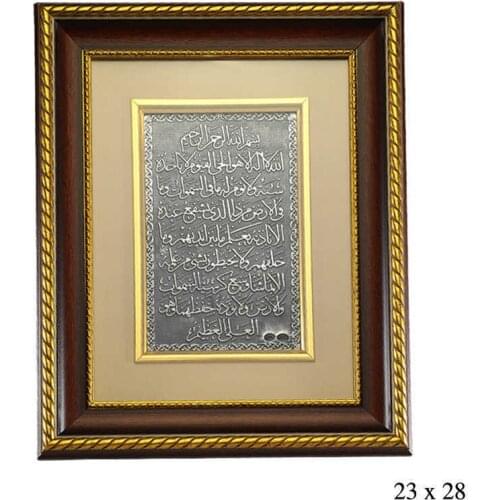 بسم الله الرحمن الرحيم
الله لا اله الا هو الحي القيوم لا تاخذه
سنة ولا نوم له ما في السموات وما
في الارض من ذا الذي يشفع عنده
الا باذنه يعلم ما بين ايديهم وما
خلفهم ولا يحيطون بشيء من علمه
الا بما شاء وسع كرسيه السموات
والارض ولا يؤده حفظهما وهو
العلي العظيم
23 x 28